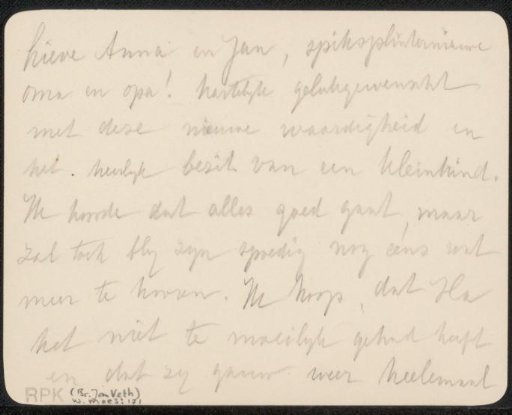 Lieve Anna en Jan, spiksplinternieuwe
oma en opa! hartelijk gelukgewenscht
met deze nieuwe waardigheid en
het heerlijk bezit van een kleinkind.
Ik hoorde dat alles goed gaat, maar
zal toch bly zyn spoedig nog eens wat
meer te hooren. Ik hoop, dat
het niet te moeilyk gehad heeft
en dat zy gauw weer heelemaal
RPK (Br. Jan Veth)